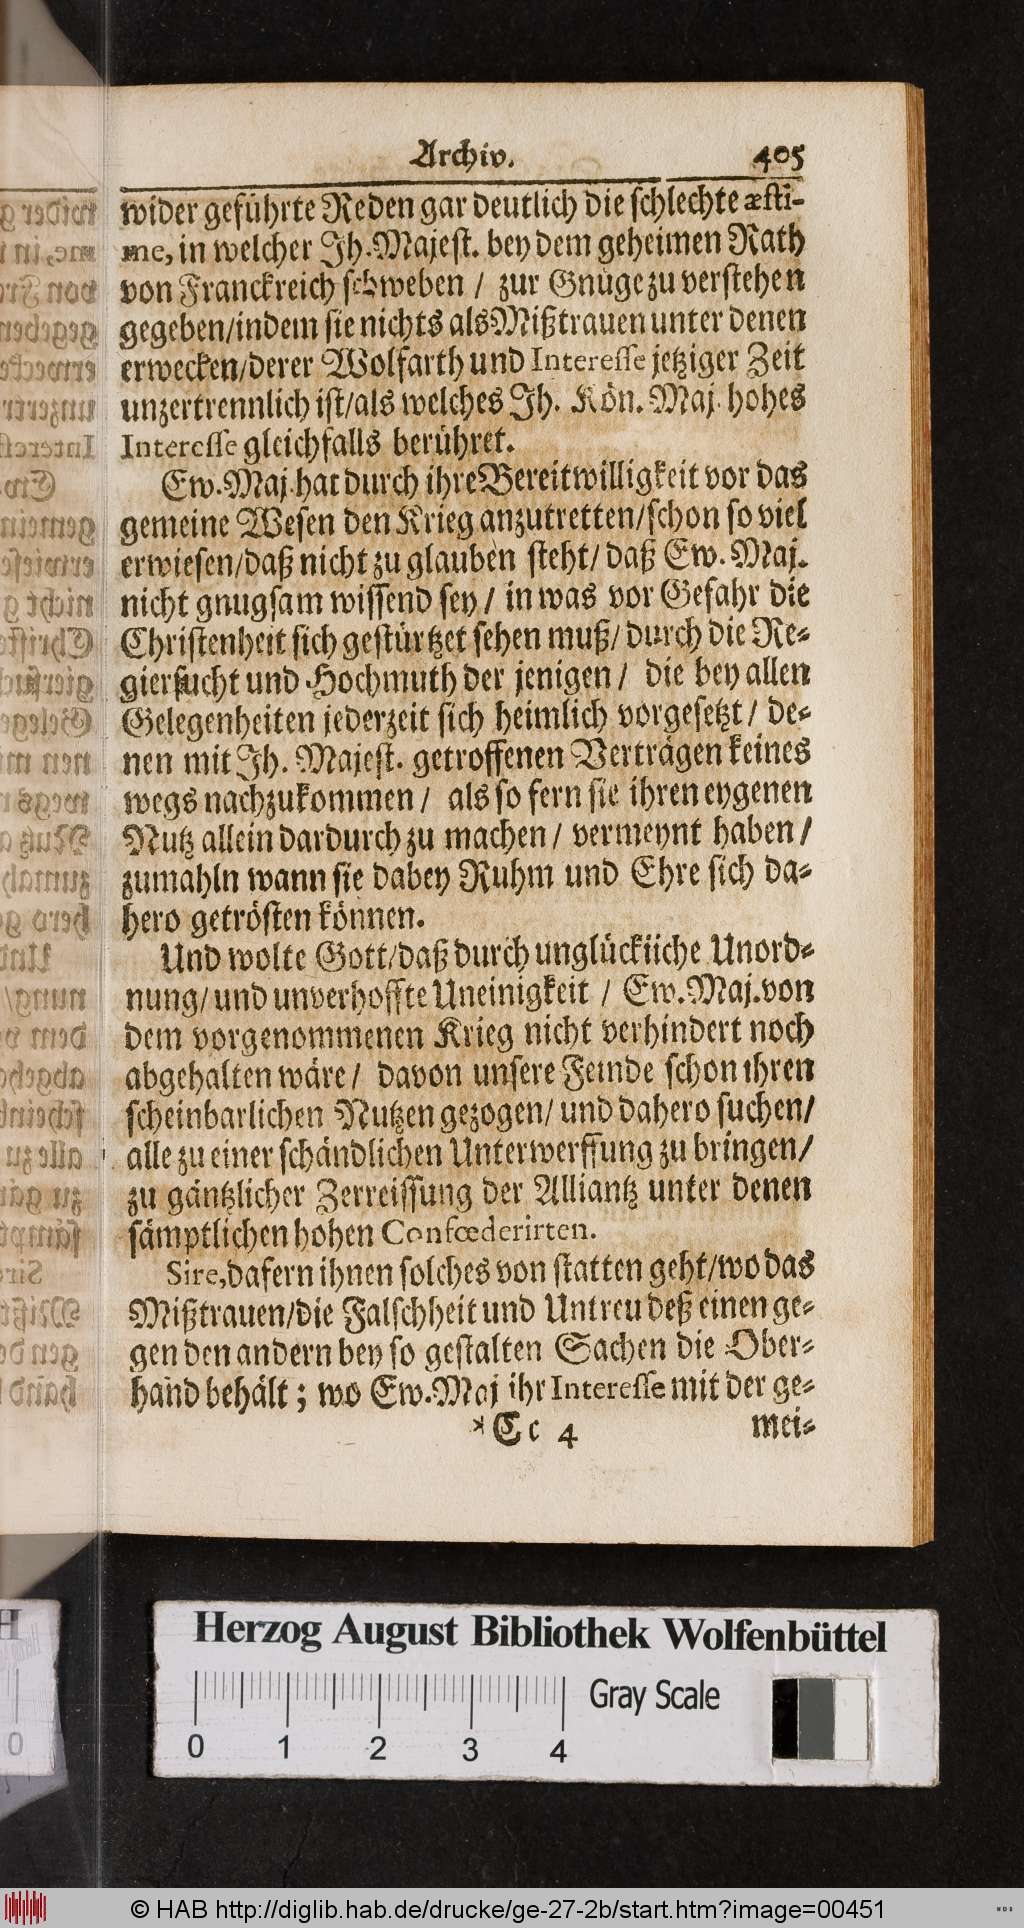 Archiv. 405
wider geführte Reden gar deutlich die schlechte æsti-
me, in welcher Jh. Majest. bey dem geheimen Rath
von Franckreich schweben / zur Gnüge zu verstehen
gegeben/indem sie nichts als Mißtrauen unter denen
erwecken/derer Wolfarth und Interesse jetziger Zeit
unzertrennlich ist/als welches Jh. Kön. Maj. hohes
Interesse gleichfalls berühret.
Ew. Maj. hat durch ihre Bereitwilligkeit vor das
gemeine Wesen den Krieg anzutretten/schon so viel
erwiesen/daß nicht zu glauben steht/ daß Ew. Maj.
nicht gnugsam wissend sey / in was vor Gefahr die
Christenheit sich gestürtzet sehen muß/ durch die Re-
giersucht und Hochmuth der jenigen / die bey allen
Gelegenheiten jederzeit sich heimlich vorgesetzt / de-
nen mit Jh. Majest. getroffenen Verträgen keines
wegs nachzukommen / als so fern sie ihren eygenen
Nutz allein dardurch zu machen / vermeynt haben /
zumahln wann sie dabey Ruhm und Ehre sich da-
hero getrösten können.
Und wolte Gott/daß durch unglückiiche Unord-
nung/ und unverhoffte Uneinigkeit / Ew. Maj. von
dem vorgenommenen Krieg nicht verhindert noch
abgehalten wäre / davon unsere Feinde schon ihren
scheinbarlichen Nutzen gezogen/ und dahero suchen/
alle zu einer schändlichen Unterwerffung zu bringen/
zu gäntzlicher Zerreissung der Alliantz unter denen
sämptlichen hohen Confœderirten.
Sire, dafern ihnen solches von statten geht/wo das
Mißtrauen/die Falschheit und Untreu deß einen ge-
gen den andern bey so gestalten Sachen die Ober-
hand behält ; wo Ew. Maj ihr Interesse mit der ge-
*Cc 4 mei-
Herzog August Bibliothek Wolfenbüttel
Gray Scale
0 1 2 3 4
© HAB http://diglib.hab.de/drucke/ge-27-2b/start.htm?image=00451